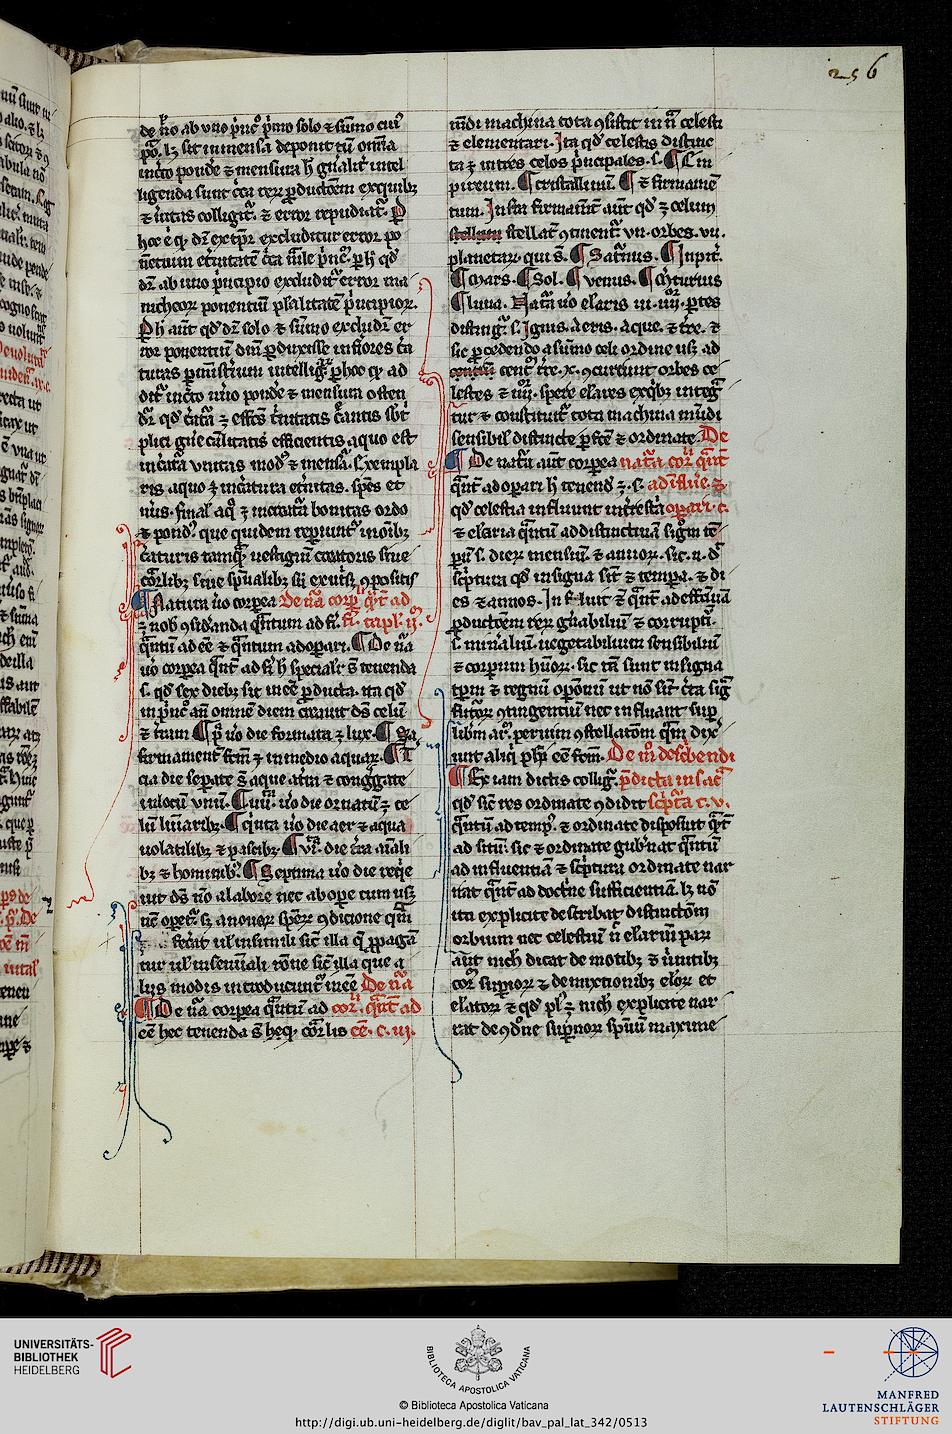 256
de no ab uno pͥncͦ pͥmo solo & sūmo cuiꝰ
pōᵃ. lꝫ sit inmensa deponit tn̄ om̄ia
in cͤto pondē & mensura h̄ gn̄alit̓ intel
ligenda sunt cͥca reꝝ ꝓductōem ex quibꝫ
& ūitas colligit̓. & error repudiat̓. P
hoc .n. qͦ dr̄ ex tp̄e excluditur error po
nētium et̓nitatē
dr̄ ab uno pͥncipio excludit̓ error ma
nicheoꝝ ponentiū pluralitatē pͥncipioꝝ.
Ph̓ aūt qd̓ dr̄ solo & sūmo excludit̓ er
ror ponentiū dm̄ ꝓduxisse inf̓iores cͤa
turas ꝑ ministrium intelligꝰ. ꝑ hoc qͦ ad
dit̓ in cͤto pondē & mensura osten
dit̓ qd̓ cͤata ē effectꝰ tͥnitatis cͤantis sb̓ t̓
plici gn̄e cālitatis efficientis a quo est
in cͤatᵃ unitas modꝰ & mensᵃ. Exempla
ris a quo ē in cͤatura ūitas. spēs et
nūs. final̓ a qͦ ē in cͤatura bonitas ordo
& pondꝰ. que quidem rep̓iunt̓ in oībꝫ
cͤaturis tamqᵃ vestigiū creatoris siue
corꝑlibꝫ siue sp̄ualibꝫ siue ex utͥsqꝫ ꝯpositis
Natura uͦ corpea De nᵃ corꝑ qᵃt̄ ad
ē nob̓ ꝯsid̓anda qᵃntum ad fi. fi. capl. ij.
qᵃntū ad ēē & qᵃntum ad opari. ¶ De nᵃ
uͦ corpea qᵃnt̄ ad fi h̄ specialit̓ s̄ tenenda
s. qd̓ sex diebꝫ sit in ēē ꝓducta. ita qd̓
in pͥncͦ an̄ omnē diem creauit ds̄ celū
& t̓ram ¶ pͥᵃ uͦ die formata ē lux. ¶ 2ᵃ.
firmamentū fcm̄ ē in medio aquaꝝ. ¶ T̓
cia die sepate s̄ aque a t̓ra & congᵍate
in locū unū. ¶ iiijᵃ. uͦ die ornatū ē ce
lū luminaribꝫ. ¶ qͥnta uͦ die aer & aqua
uolatilibꝫ & piscibꝫ ¶ vjᵃ. die t̓ra aīali
bꝫ & hominibꝫ ¶ Septima uͦ die reqͥe
uit ds̄ nō a labore nec ab ope cum usqꝫ
nūc opet̓. sꝫ a nouaꝝ spēꝝ ꝯdicione qm̄
oīa fec̓at ul̓ in simili sic̄ illa q̄ ꝓpagā
tur ul̓ in seminali rōne sic̄ illa que a
liis modis introducunt̓ in ēē De nᵃ
De nᵃ corpea qᵃntū ad corꝑ qᵃt̄ ad
ēē hec tenenda s̄ corꝑalis ēē. c. iij.
mūdi machina tota ꝯsistit in nᵃ celesti
& elementari. Ita qd̓ celestis distinc
ta ē in tres celos pͥncipales. s. ¶ Em
pireum. ¶ cristallinū. ¶ & firmamē
tum. Infra firmamēt̄ aūt qd̓ ē celum
stellatū ꝯtinent̓ vii. orbes. vii.
planetaꝝ. qui s̄. ¶ Saturnꝰ. ¶ Iupit̓.
¶ Mars. ¶ Sol. ¶ Venus. ¶ Mercurius
¶ luna. Natᵃ uͦ elaris in .iiij. ptes
distingͥt̓. s. Ignis. Aeris. Aque. & t̓re. &
sic ꝓcedendo a sūmo celi ordine usqꝫ ad
centꝝ t̓re .x. ꝯcurrunt orbes ce
lestes & iiijᵒʳ. spere elares ex qͥbꝫ integᵃ
tur & constituit̓ tota machina mūdi
sensibil̓ distincte ꝑfc̄e & ordinate. De
De natᵃ aūt corpea natᵃ corꝑ qᵃnt̄
qᵃnt̄ ad opari h̄ tenend̄ ē. s. ad influē. &
qd̓ celestia influunt in t̓restᵃ opari. c.
& elaria qᵃntū ad distinctiuā sigͥm te
pū s. dieꝝ mensiū & annoꝝ. sic. n. dͥ
scͥptura qd̓ in signa sīt & tempa. & di
es & annos. Influūt & qᵃnt̄ ad effectiuā
ꝓductōem reꝝ gn̄abiliū & corrupti.
s. min̓aliū. uegetabilium sensibiliū
& corpum hūoꝝ. sic tn̄ sunt in signa
tpm̄ & regnū opōnū ut nō sīt c̓ta sig̓
futuroꝝ ꝯtingentiū nec influant sup
libm̄ arᵐ. ꝑ etiam ꝯstellatōnū qᵃm dixē
runt aliqͥ phi ēē fcm̄. De mͦ describendi
Ex iam dictis colligͥ. p̄dicta in sacᵃ
qd̓ sic̄ res ordinate ꝯdidit scͥptᵃ c. v.
qᵃntū ad tempꝰ. & ordinate disposuit qᵃt̄
ad situ. sic & ordinate gub̓nat qᵃntū
ad influentiā & scͥptura ordinate nar
rat qᵃnt̄ ad doctͥne sufficientiā. lꝫ nō
ita explicite describat distinctōm
orbium nec celestiū nͥ elariū par
aūt nich̓ dicat de motibꝫ & ūitibꝫ
corꝑ supioꝝ & de mixtionibꝫ eloꝝ et
elatoꝝ & qd̓ plꝰ ē nich̓ explicite nar
rat de ꝯdne supnoꝝ spūū maxime
UNIVERSITÄTS-
BIBLIOTHEK
HEIDELBERG
BIBLIOTECA APOSTOLICA VATICANA
© Biblioteca Apostolica Vaticana
http://digi.ub.uni-heidelberg.de/diglit/bav_pal_lat_342/0513
MANFRED
LAUTENSCHLÄGER
STIFTUNG